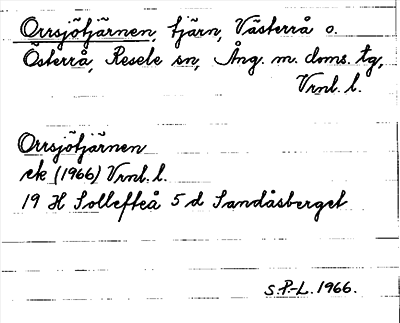 Orrsjötjärnen, tjärn, Västerrå o.
Österrå, Resele sn, Ång. m. doms. tg,
Vrnl. l.
Orrsjötjärnen
ek (1966) Vrnl. l.
19 H Sollefteå 5 d Sandåsberget
S.P-L. 1966.